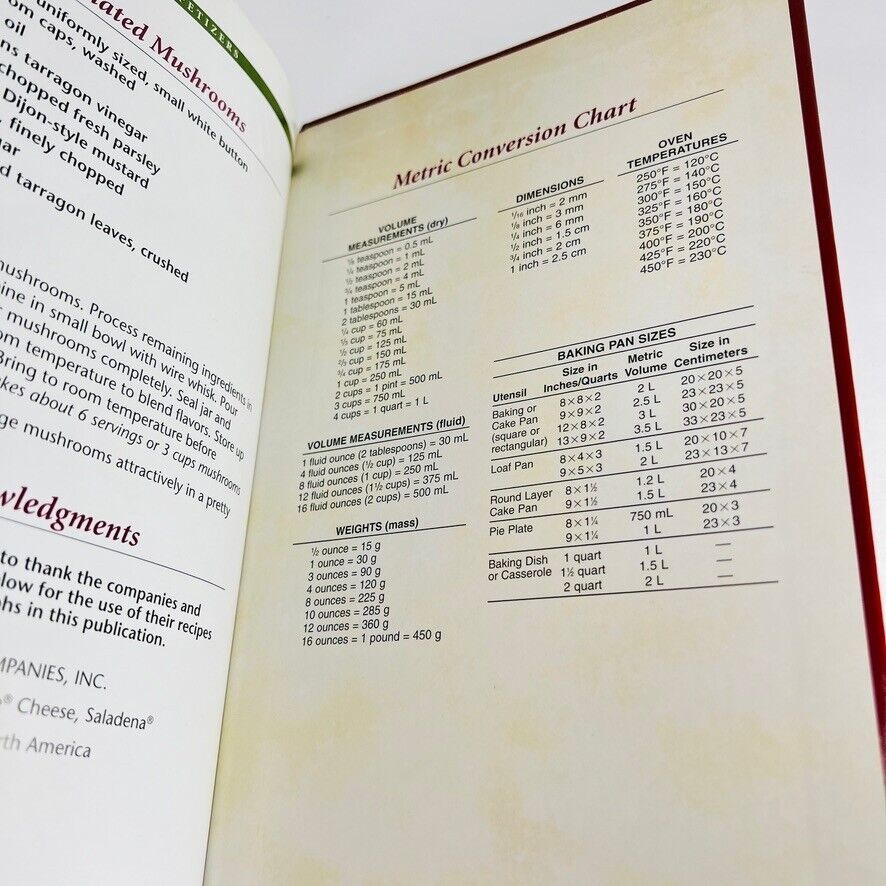 PETIZERS
nated Mushrooms
uniformly sized, small white button
om caps, washed
oil
ns tarragon vinegar
chopped fresh parsley
Dijon-style mustard
, finely chopped
gar
d tarragon leaves, crushed
mushrooms. Process remaining ingredients in
bine in small bowl with wire whisk. Pour
r mushrooms completely. Seal jar and
om temperature to blend flavors. Store up
Bring to room temperature before
akes about 6 servings or 3 cups mushrooms
ge mushrooms attractively in a pretty
wledgments
to thank the companies and
low for the use of their recipes
hs in this publication.
MPANIES, INC.
® Cheese, Saladena®
rth America
Metric Conversion Chart
VOLUME
MEASUREMENTS (dry)
⅛ teaspoon = 0.5 mL
¼ teaspoon = 1 mL
½ teaspoon = 2 mL
¾ teaspoon = 4 mL
1 teaspoon = 5 mL
1 tablespoon = 15 mL
2 tablespoons = 30 mL
¼ cup = 60 mL
⅓ cup = 75 mL
½ cup = 125 mL
⅔ cup = 150 mL
¾ cup = 175 mL
1 cup = 250 mL
2 cups = 1 pint = 500 mL
3 cups = 750 mL
4 cups = 1 quart = 1 L
VOLUME MEASUREMENTS (fluid)
1 fluid ounce (2 tablespoons) = 30 mL
4 fluid ounces (½ cup) = 125 mL
8 fluid ounces (1 cup) = 250 mL
12 fluid ounces (1½ cups) = 375 mL
16 fluid ounces (2 cups) = 500 mL
WEIGHTS (mass)
½ ounce = 15 g
1 ounce = 30 g
3 ounces = 90 g
4 ounces = 120 g
8 ounces = 225 g
10 ounces = 285 g
12 ounces = 360 g
16 ounces = 1 pound = 450 g
DIMENSIONS
1/16 inch = 2 mm
⅛ inch = 3 mm
¼ inch = 6 mm
½ inch = 1.5 cm
¾ inch = 2 cm
1 inch = 2.5 cm
OVEN
TEMPERATURES
250°F = 120°C
275°F = 140°C
300°F = 150°C
325°F = 160°C
350°F = 180°C
375°F = 190°C
400°F = 200°C
425°F = 220°C
450°F = 230°C
BAKING PAN SIZES
Utensil Size in Inches/Quarts Metric Volume Size in Centimeters
Baking or 8×8×2 2 L 20×20×5
Cake Pan 9×9×2 2.5 L 23×23×5
(square or 12×8×2 3 L 30×20×5
rectangular) 13×9×2 3.5 L 33×23×5
Loaf Pan 8×4×3 1.5 L 20×10×7
9×5×3 2 L 23×13×7
Round Layer 8×1½ 1.2 L 20×4
Cake Pan 9×1½ 1.5 L 23×4
Pie Plate 8×1¼ 750 mL 20×3
9×1¼ 1 L 23×3
Baking Dish 1 quart 1 L —
or Casserole 1½ quart 1.5 L —
2 quart 2 L —